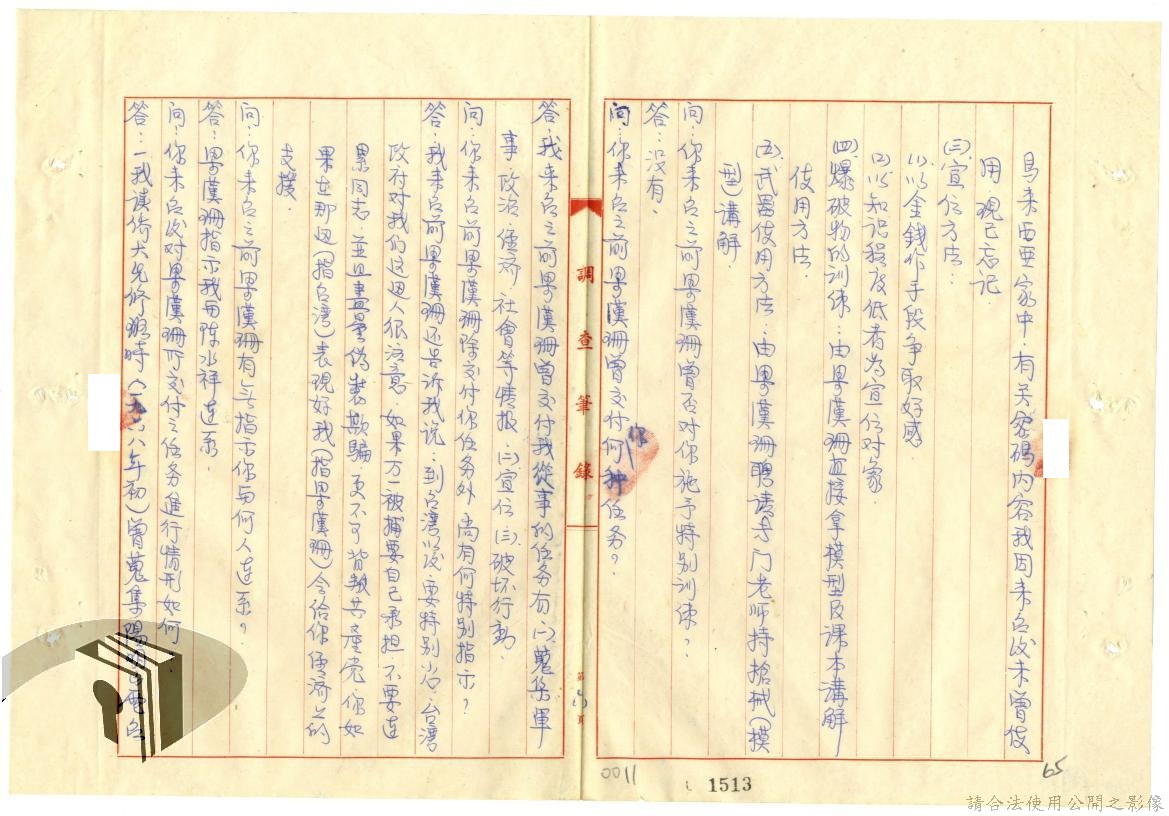 馬來西亞家中．有关密碼内容我因来台后未曾使
用現已忘記．
(三)．宣傳方法：
(1)．以金錢作手段争取好感．
(2)．以知識程度低者為宣傳対象．
(四)．爆破物的训练：由畢漢珊直接拿模型及课本講解
使用方法．
(五)．武器使用方法：由畢漢珊聘请专门老师持槍械(模
型)講解．
问：你来台之前畢漢珊曾否对你施予特别训练？
答：没有．
问：你来台之前畢漢珊曾交付你何种任务？
答：我来台之前畢漢珊曾交付我從事的任务有(一)．蒐集軍
事 政治 經済 社會等情报．(二)宣传(三)．破坏行動
问：你来台前畢漢珊除交付你任务外 尚有何特别指示？
答：我来台前畢漢珊还告诉我说：到台湾以後要特别小心．台湾
政府对我们这边人很注意 如果万一被捕要自己承担 不要连
累同志．並且盡量偽裝欺騙．更不可背叛共產党．你如
果在那边(指台湾)表現好我(指畢漢珊)会给你经济上的
支援．
问：你来台之前畢漢珊有无指示你与何人连系？
答：畢漢珊指示我与陈水祥连系．
问：你来台後对畢漢珊所交付之任务進行情形如何
答：一我读侨大先修班時(一九六八年初)曾蒐集陽明山
調查筆錄
第
頁
0011
1513
65
請合法使用公開之影像